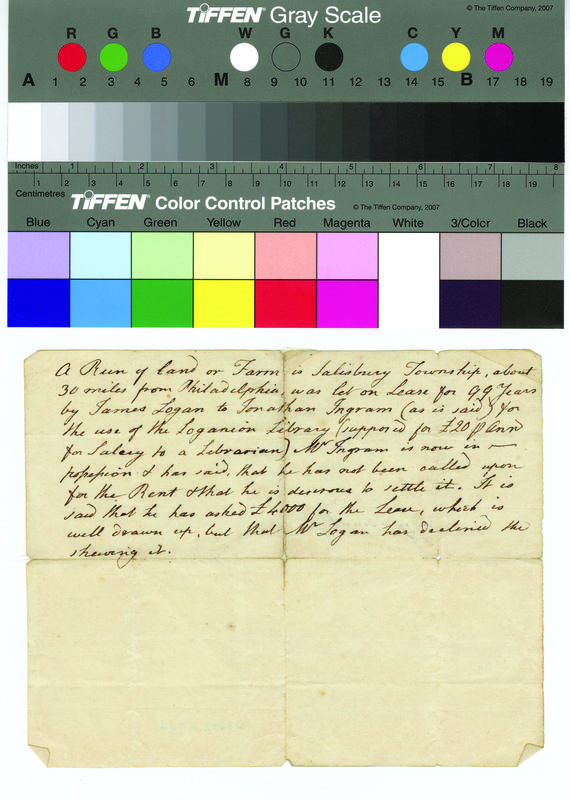 TIFFEN® Gray Scale
© The Tiffen Company, 2007
R G B W G K C Y M
A 1 2 3 4 5 6 M 8 9 10 11 12 13 14 15 B 17 18 19
Inches 1 2 3 4 5 6 7 8
Centimetres 1 2 3 4 5 6 7 8 9 10 11 12 13 14 15 16 17 18 19
TIFFEN® Color Control Patches © The Tiffen Company, 2007
Blue Cyan Green Yellow Red Magenta White 3/Color Black
A Run of land or Farm in Salisbury Township, about
30 miles from Philadelphia, was let on Lease for 99 Years
by James Logan to Jonathan Ingram (as is said) for
the use of the Loganian Library (supposed for £20 ⅌ Ann
for Salary to a Librarian) Mr Ingram is now in
possession & has said, that he has not been called upon
for the Rent & that he is desirous to settle it. It is
said that he has asked £4000 for the Lease, which is
well drawn up, but that Mr Logan has declined the
shewing it.